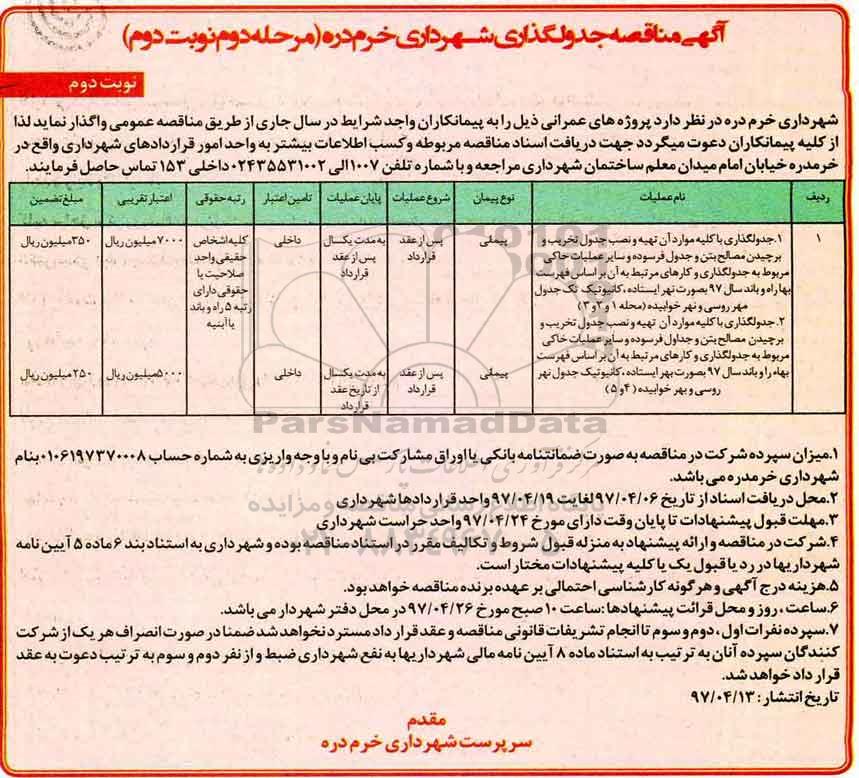 آگهی مناقصه جدولگذاری شهرداری خرم دره (مرحله دوم نوبت دوم)
نوبت دوم
شهرداری خرم دره در نظر دارد پروژه های عمرانی ذیل را به پیمانکاران واجد شرایط در سال جاری از طریق مناقصه عمومی واگذار نماید لذا
از کلیه پیمانکاران دعوت میگردد جهت دریافت اسناد مناقصه مربوطه و کسب اطلاعات بیشتر به واحد امور قراردادهای شهرداری واقع در
خرمدره خیابان امام میدان معلم ساختمان شهرداری مراجعه و با شماره تلفن ۱۰۰۷ الی ۰۲۴۳۵۵۳۱۰۰۲ داخلی ۱۵۳ تماس حاصل فرمایند.
ردیف نام عملیات نوع پیمان شروع عملیات پایان عملیات تامین اعتبار رتبه حقوقی اعتبار تقریبی مبلغ تضمین
۱ ۱.جدولگذاری با کلیه موارد آن تهیه و نصب جدول تخریب و پیمانی پس از عقد به مدت یکسال داخلی کلیه اشخاص ۷۰۰۰ میلیون ریال ۳۵۰ میلیون ریال
برچیدن مصالح بتن و جدول فرسوده و سایر عملیات خاکی قرارداد پس از عقد حقیقی واجد
مربوط به جدولگذاری و کارهای مرتبط به آن بر اساس فهرست قرارداد صلاحیت یا
بها راه و باند سال ۹۷ بصورت نهر ایستاده، کانیوتیک تک جدول حقوقی دارای
مهر روسی و نهر خوابیده (محله ۱ و ۲ و ۳) رتبه ۵ راه و باند
۲.جدولگذاری با کلیه موارد آن تهیه و نصب جدول تخریب و یا آبنیه
برچیدن مصالح بتن و جداول فرسوده و سایر عملیات خاکی
مربوط به جدولگذاری و کارهای مرتبط به آن بر اساس فهرست
بهاه راه و باند سال ۹۷ بصورت نهر ایستاده، کانیوتیک جدول نهر پیمانی پس از عقد به مدت یکسال داخلی ۵۰۰۰ میلیون ریال ۲۵۰ میلیون ریال
روسی و نهر خوابیده (۴ و ۵) قرارداد از تاریخ عقد
قرارداد
ParsNamadData
۱.میزان سپرده شرکت در مناقصه به صورت ضمانتنامه بانکی یا اوراق مشارکت بی نام و یا وجه واریزی به شماره حساب ۰۱۰۶۱۹۷۳۷۰۰۰۸ بنام
شهرداری خرمدره می باشد.
۲.محل دریافت اسناد از تاریخ ۹۷/۰۴/۰۶ لغایت ۹۷/۰۴/۱۹ واحد قراردادها شهرداری
۳.مهلت قبول پیشنهادات تا پایان وقت دارای مورخ ۹۷/۰۴/۲۴ واحد حراست شهرداری
۴.شرکت در مناقصه و ارائه پیشنهاد به منزله قبول شروط و تکالیف مقرر در اسناد مناقصه بوده و شهرداری به استناد بند ۶ ماده ۵ آیین نامه
شهرداریها در رد یا قبول یک یا کلیه پیشنهادات مختار است.
۵.هزینه درج آگهی و هرگونه کارشناسی احتمالی بر عهده برنده مناقصه خواهد بود.
۶.ساعت، روز و محل قرائت پیشنهادها: ساعت ۱۰ صبح مورخ ۹۷/۰۴/۲۶ در محل دفتر شهردار می باشد.
۷.سپرده نفرات اول، دوم و سوم تا انجام تشریفات قانونی مناقصه و عقد قرارداد مسترد نخواهد شد ضمنا در صورت انصراف هر یک از شرکت
کنندگان سپرده آنان به ترتیب به استناد ماده ۸ آیین نامه مالی شهرداریها به نفع شهرداری ضبط و از نفر دوم و سوم به ترتیب دعوت به عقد
قرار داد خواهد شد.
تاریخ انتشار: ۹۷/۰۴/۱۳
مقدم
سرپرست شهرداری خرم دره